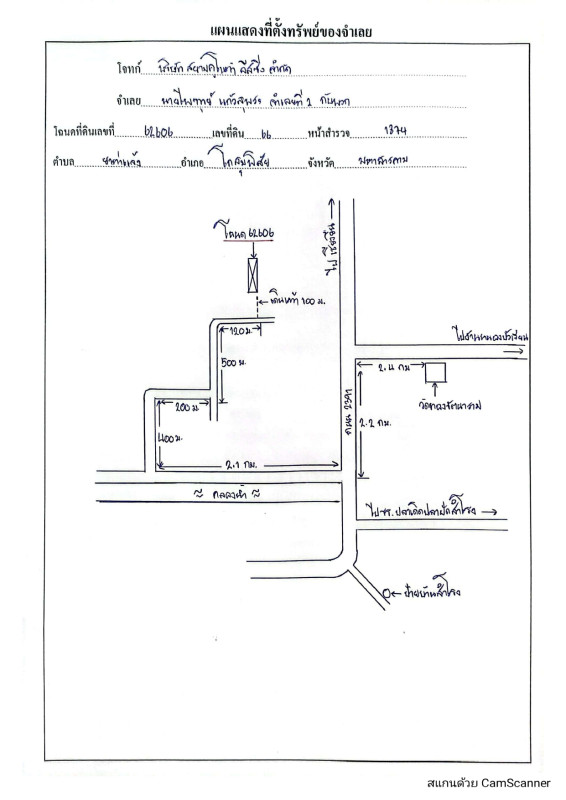 แผนแสดงที่ตั้งทรัพย์ของจำเลย
โจทก์ บริษัท สยามคูโบต้า ลีสซิ่ง จำกัด
จำเลย นายไพฑูรย์ แก้วสุพรร จำเลยที่ 2 กับพวก
โฉนดที่ดินเลขที่ 62606 เลขที่ดิน 66 หน้าสำรวจ 1374
ตำบล ยางท่าแจ้ง อำเภอ โกสุมพิสัย จังหวัด มหาสารคาม
โฉนด 62606
ไป เชียงยืน
เดินเท้า 100 ม.
120 ม.
ไปบ้านหนองบัวเรียน
500 ม.
2.4 กม
200 ม
ถนน 2391
2.2 กม.
400 ม.
2.1 กม.
≈ คลองน้ำ ≈
→
ป้ายบ้านสำโรง
สแกนด้วย CamScanner